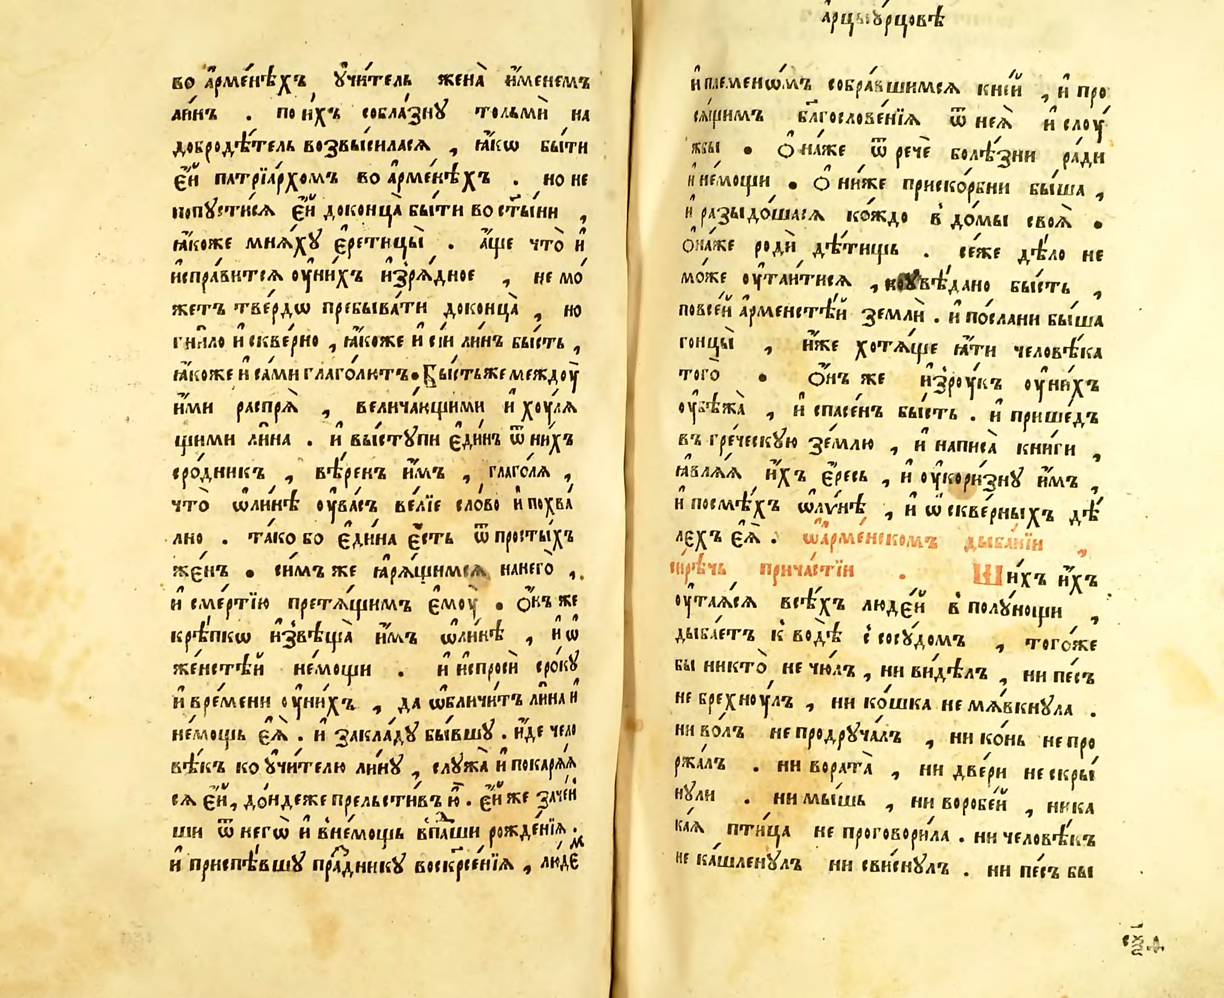 во а҆рме́нѣхъ, ᲂу҆чи́тель жена̀ и҆́менемъ
ли́нъ . по и҆́хъ собла́знꙋ тольмѝ на
добродѣ́тель возвы́силася , ꙗ҆́кѡ бы́ти
є҆́й патрїа́рхомъ во а҆рме́нѣхъ . но не
попꙋсти́ся є҆́й доконца̀ бы́ти во ст҃ы́ни ,
ꙗ҆́коже мнѧ́хꙋ є҆ретицы̀ . а҆́ще что̀ и҆
и҆спра́витсѧ ᲂу҆ни́хъ и҆зрѧ́дное , не мо́
жетъ тве́рдѡ пребыва́ти доконца̀ , но
гни́ло и҆ скве́рно , ꙗ҆́коже и҆ сїѝ ли́нъ бы́сть ,
ꙗ҆́коже и҆ са́ми глаго́лютъ • Бы́стьже междоу҆
и҆́ми распрѧ̀ , велича́ющими и҆ хоу́лѧ
щими ли́на . и҆ вы́ступи є҆ди́нъ ѿ ни́хъ
сро́дникъ , вѣ́ренъ и҆́мъ , глаго́лѧ ,
что̀ ѡ҆ли́нѣ ᲂу҆ва́съ ве́лїе сло́во и҆ похва́
лно . та́ко бо є҆ди́на є҆́сть ѿ просты́хъ
же́нъ • си́мъ же ꙗ҆рѧ́щимсѧ нанего̀ ,
и҆ сме́ртїю претѧ́щимъ є҆моу̀ • Ѻ҆́нъ же
крѣ́пкѡ и҆звѣща̀ и҆́мъ ѡ҆ли́нѣ , и҆ ѡ
же́нстѣй не́мощи . и҆ и҆спросѝ сро́кꙋ
и҆ вре́мени ᲂу҆ни́хъ , да ѡ҆бличи́тъ ли́на и҆
не́мощь є҆ѧ̀ . и҆ закла́дꙋ бы́вшꙋ . и҆́де чело
вѣ́къ ко ᲂу҆чи́телю ли́нꙋ , слꙋжа̀ и҆ покарѧ́ѧ
сѧ є҆́й , до́ндеже прельсти́въ ю҆̀ . є҆́й же заче́н
ши ѿ негѡ̀ и҆ в̾не́мощь впа́дши рожде́нїѧ .
и҆ приспѣ́вшꙋ пра́дникꙋ воскрⷭ҇е́нїѧ , лю́де̑м
а҆рцыᲂу́рцовѣ
и҆ племенѡ́мъ собра́вшимсѧ к не́й , и҆ про
сѧ́щимъ благослове́нїѧ ѿ неѧ̀ и҆ слоу́
жбы • Ѻ҆на́же ѿречѐ болѣ́зни ра́ди
и҆ не́мощи • Ѻ҆ни́же приско́рбни бы́ша ,
и҆ разыдо́шасѧ ко́ждо в̾ до́мы своѧ̀ •
Ѻ҆на́же родѝ дѣ́тищь . се́же дѣ́ло не
мо́же ᲂу҆таи́тисѧ , но ᲂу҆вѣ́дано бы́сть ,
повсе́й а҆рме́нстѣй землѝ . и҆ по́слани бы́ша
гонцы̀ , и҆́же хотѧ́ще ꙗ҆́ти человѣ́ка
того̀ • Ѻ҆́нъ же и҆зроу́къ ᲂу҆ни́хъ
ᲂу҆бѣжа̀ , и҆ спасе́нъ бы́сть . и҆ прише́дъ
въ гре́ческꙋю зе́млю , и҆ написа̀ кни́ги ,
ꙗ҆влѧ́ѧ и҆́хъ є҆́ресь , и҆ ᲂу҆кори́знꙋ и҆́мъ ,
и҆ посмѣ́хъ ѡ҆лꙋ́нѣ , и҆ ѡ скве́рныхъ дѣ́
лехъ є҆ѧ̀ . ѡ҆а҆рме́нскомъ дыба́нїи ,
си́рѣчь прича́стїи . Ши́хъ и҆́хъ
ᲂу҆таѧ́сѧ всѣ́хъ люде́й в̾ полꙋ́нощи ,
дыба́етъ к̾ водѣ̀ с̾ сосꙋ́домъ , тогѡ́же
бы никто̀ не чю́лъ , ни ви́дѣлъ , ни пе́съ
не брехноу́лъ , ни ко́шка не мѧ́вкнꙋла .
ни во́лъ не продрꙋча́лъ , ни ко́нь не про
ржа́лъ . ни вората̀ , ни две́ри не скры́
нꙋли . ни мы́шь , ни воробе́й , ни ка
ка́ѧ пти́ца не проговори́ла . ни человѣ́къ
не ка́шленꙋлъ ни сви́снꙋлъ . ни пе́съ бы